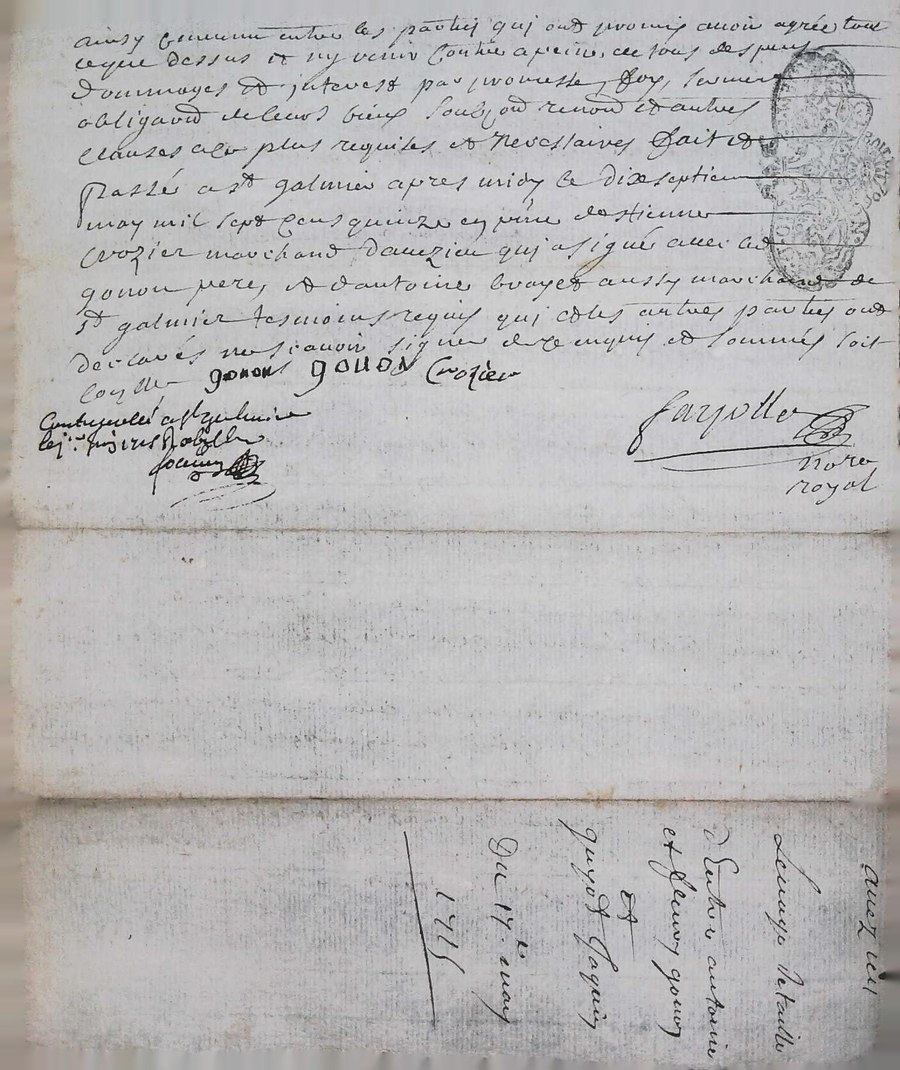 ainsy convenu entre les parties qui ont promis avoir agrée tout
ceque dessus et ny venir contre a peine de tous despens
dommages et interest par promesse, foy, serment
obligaõn de leurs biens soubz renonõn et autres
clauses a ce plus requises et necessaires fait et
passé a st galmier apres midy le dixseptieme
may mil sept cens quinze en pnce destienne
Crozier marchand d'auezieu qui a signé avec led
gonon pere, et d'antoine brayet aussy marchand de
st galmier tesmoins requis qui et les autres parties ont
declarés ne scavoir signer de ce enquis et sommés soit
gonon gonon Crozier
Controlleé a st galmier
farjotte
nore
royal
auezieu
d'Entre antoine
et gonon
guyot Jaquin
et
Du 17e may
1715